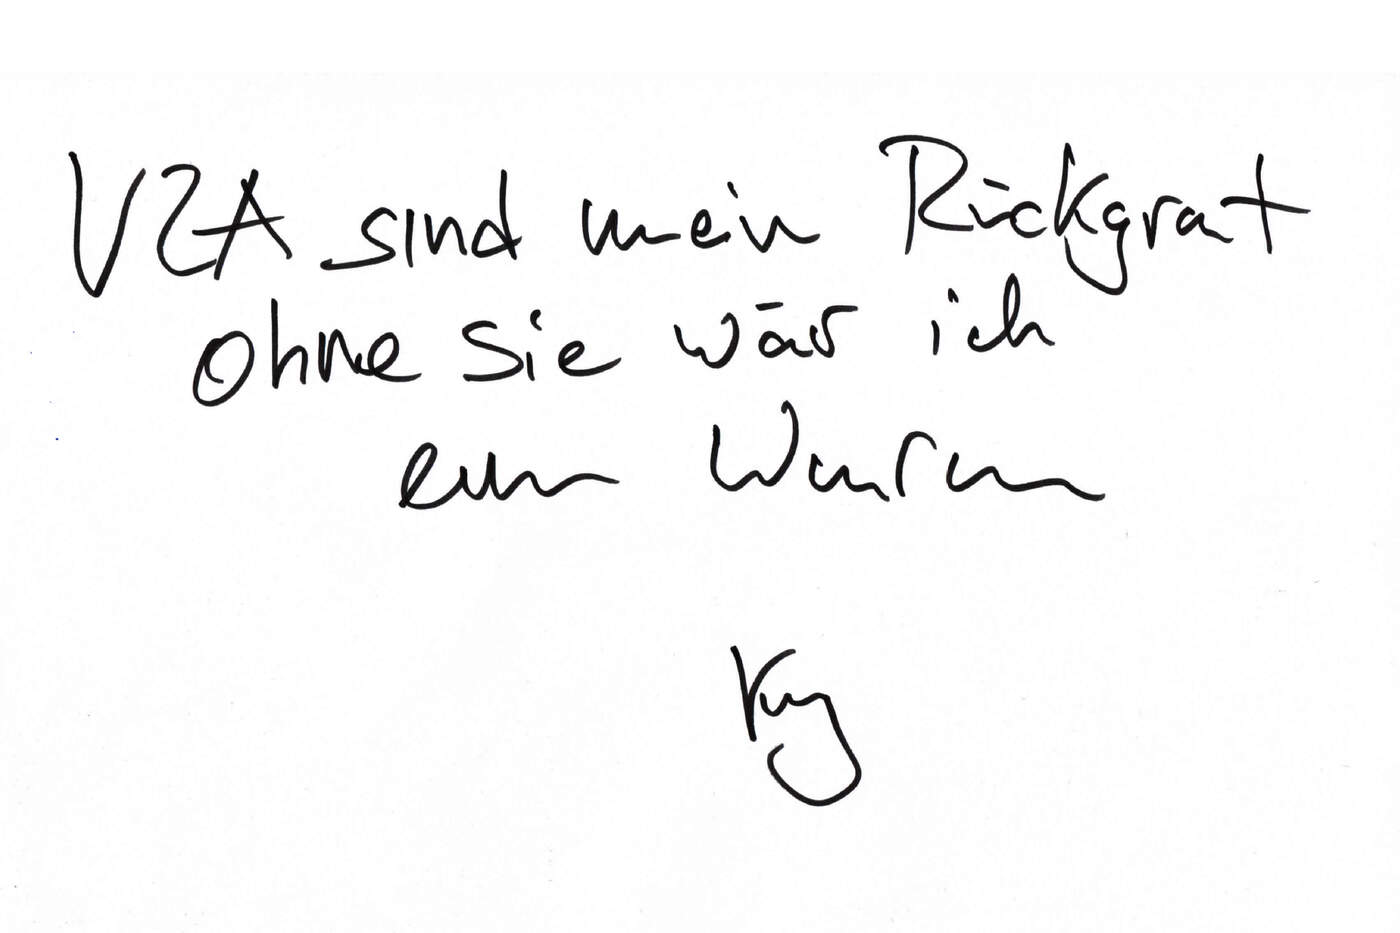 VZA sind mein Rückgrat
ohne sie wär ich
ein Wurm